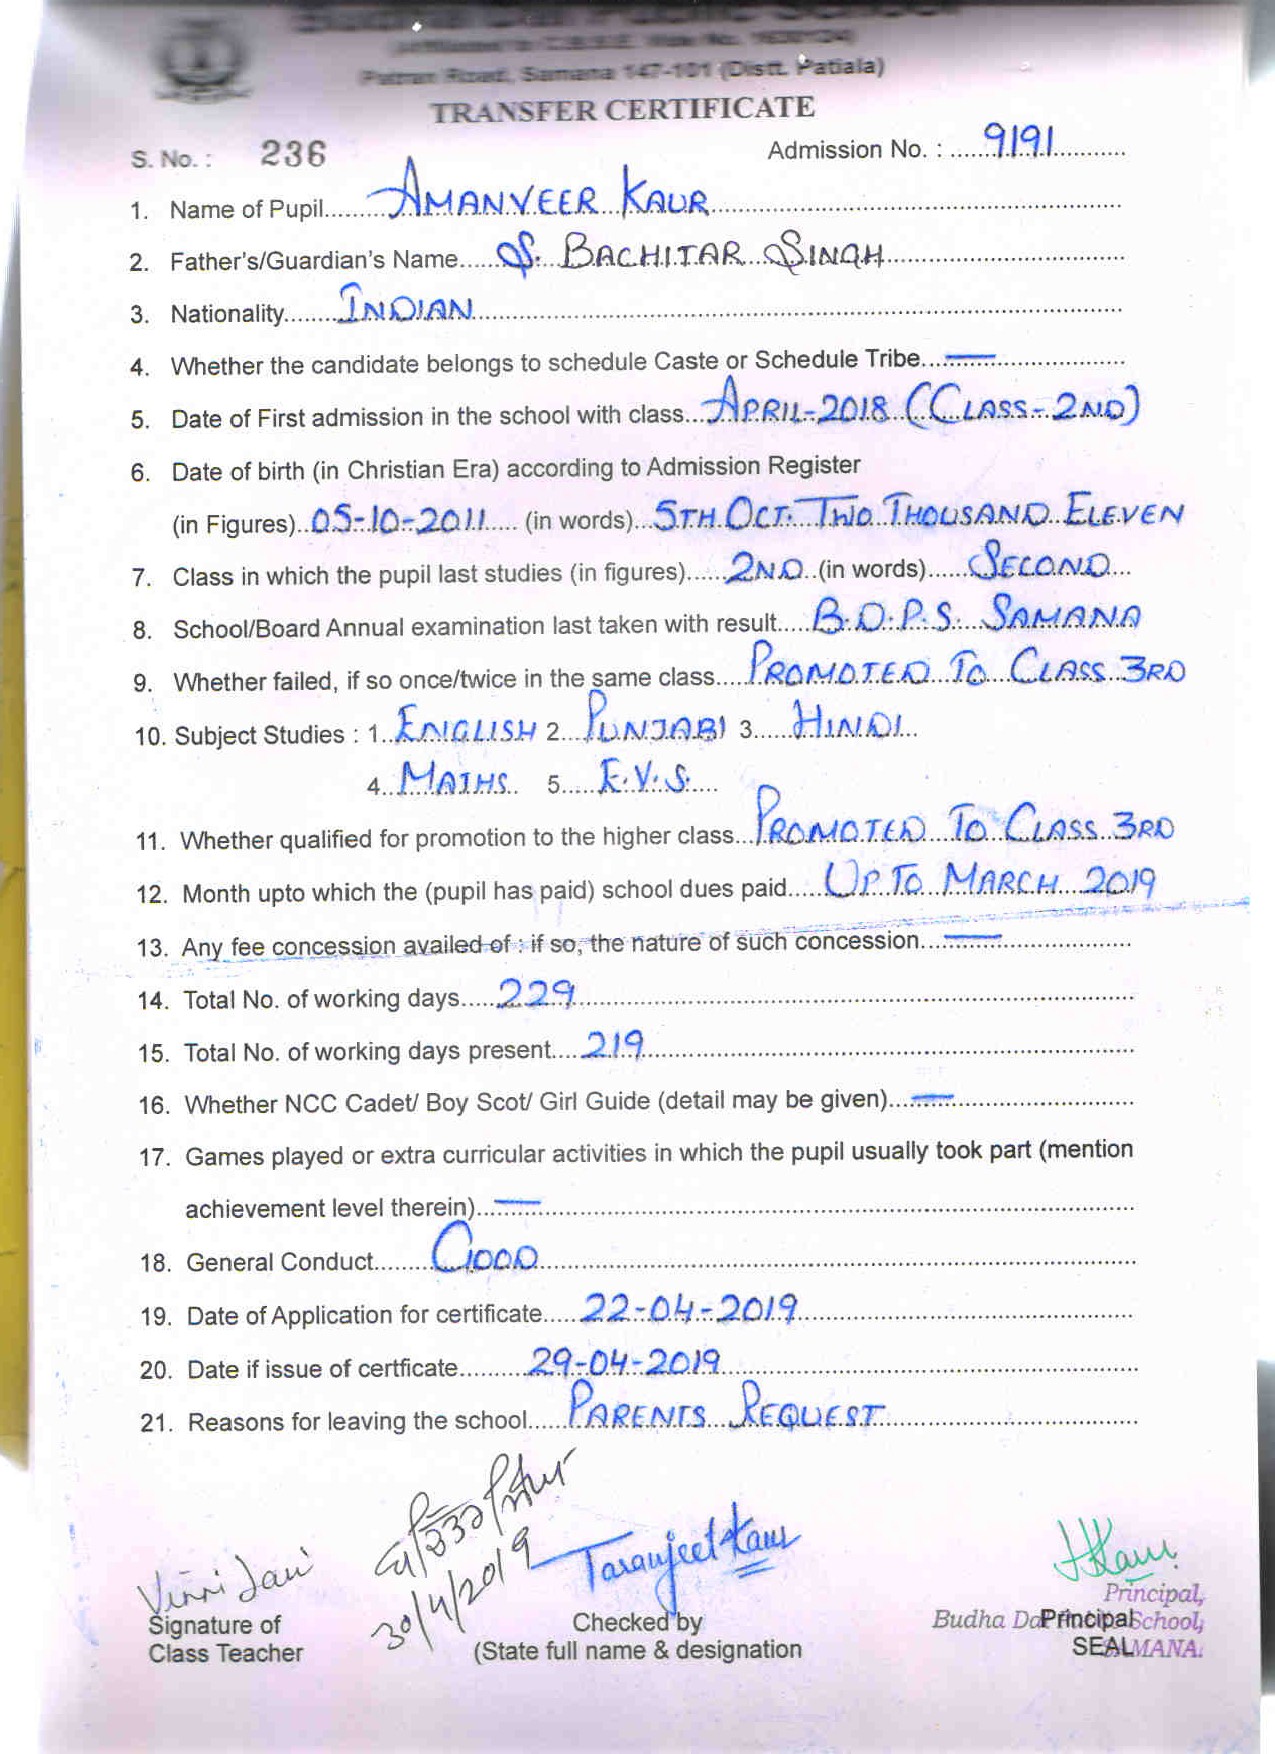 Patran Road, Samana 147-101 (Distt. Patiala)
TRANSFER CERTIFICATE
S. No. : 236 Admission No. : 9191
1. Name of Pupil AMANVEER KAUR
2. Father's/Guardian's Name S. BACHITAR SINGH
3. Nationality INDIAN
4. Whether the candidate belongs to schedule Caste or Schedule Tribe —
5. Date of First admission in the school with class APRIL-2018 (CLASS-2ND)
6. Date of birth (in Christian Era) according to Admission Register
(in Figures) 05-10-2011 (in words) 5TH OCT. TWO THOUSAND ELEVEN
7. Class in which the pupil last studies (in figures) 2ND (in words) SECOND
8. School/Board Annual examination last taken with result B.D.P.S. SAMANA
9. Whether failed, if so once/twice in the same class PROMOTED TO CLASS 3RD
10. Subject Studies : 1 ENGLISH 2 PUNJABI 3 HINDI
4 MATHS 5 E.V.S.
11. Whether qualified for promotion to the higher class PROMOTED TO CLASS 3RD
12. Month upto which the (pupil has paid) school dues paid UP TO MARCH 2019
13. Any fee concession availed of : if so, the nature of such concession —
14. Total No. of working days 229
15. Total No. of working days present 219
16. Whether NCC Cadet/ Boy Scot/ Girl Guide (detail may be given) —
17. Games played or extra curricular activities in which the pupil usually took part (mention
achievement level therein) —
18. General Conduct GOOD
19. Date of Application for certificate 22-04-2019
20. Date if issue of certficate 29-04-2019
21. Reasons for leaving the school PARENTS REQUEST
30/4/2019
Taranjeet Kaur
Principal,
Signature of Checked by Budha Dal Principal School,
Class Teacher (State full name & designation SEAL SAMANA.